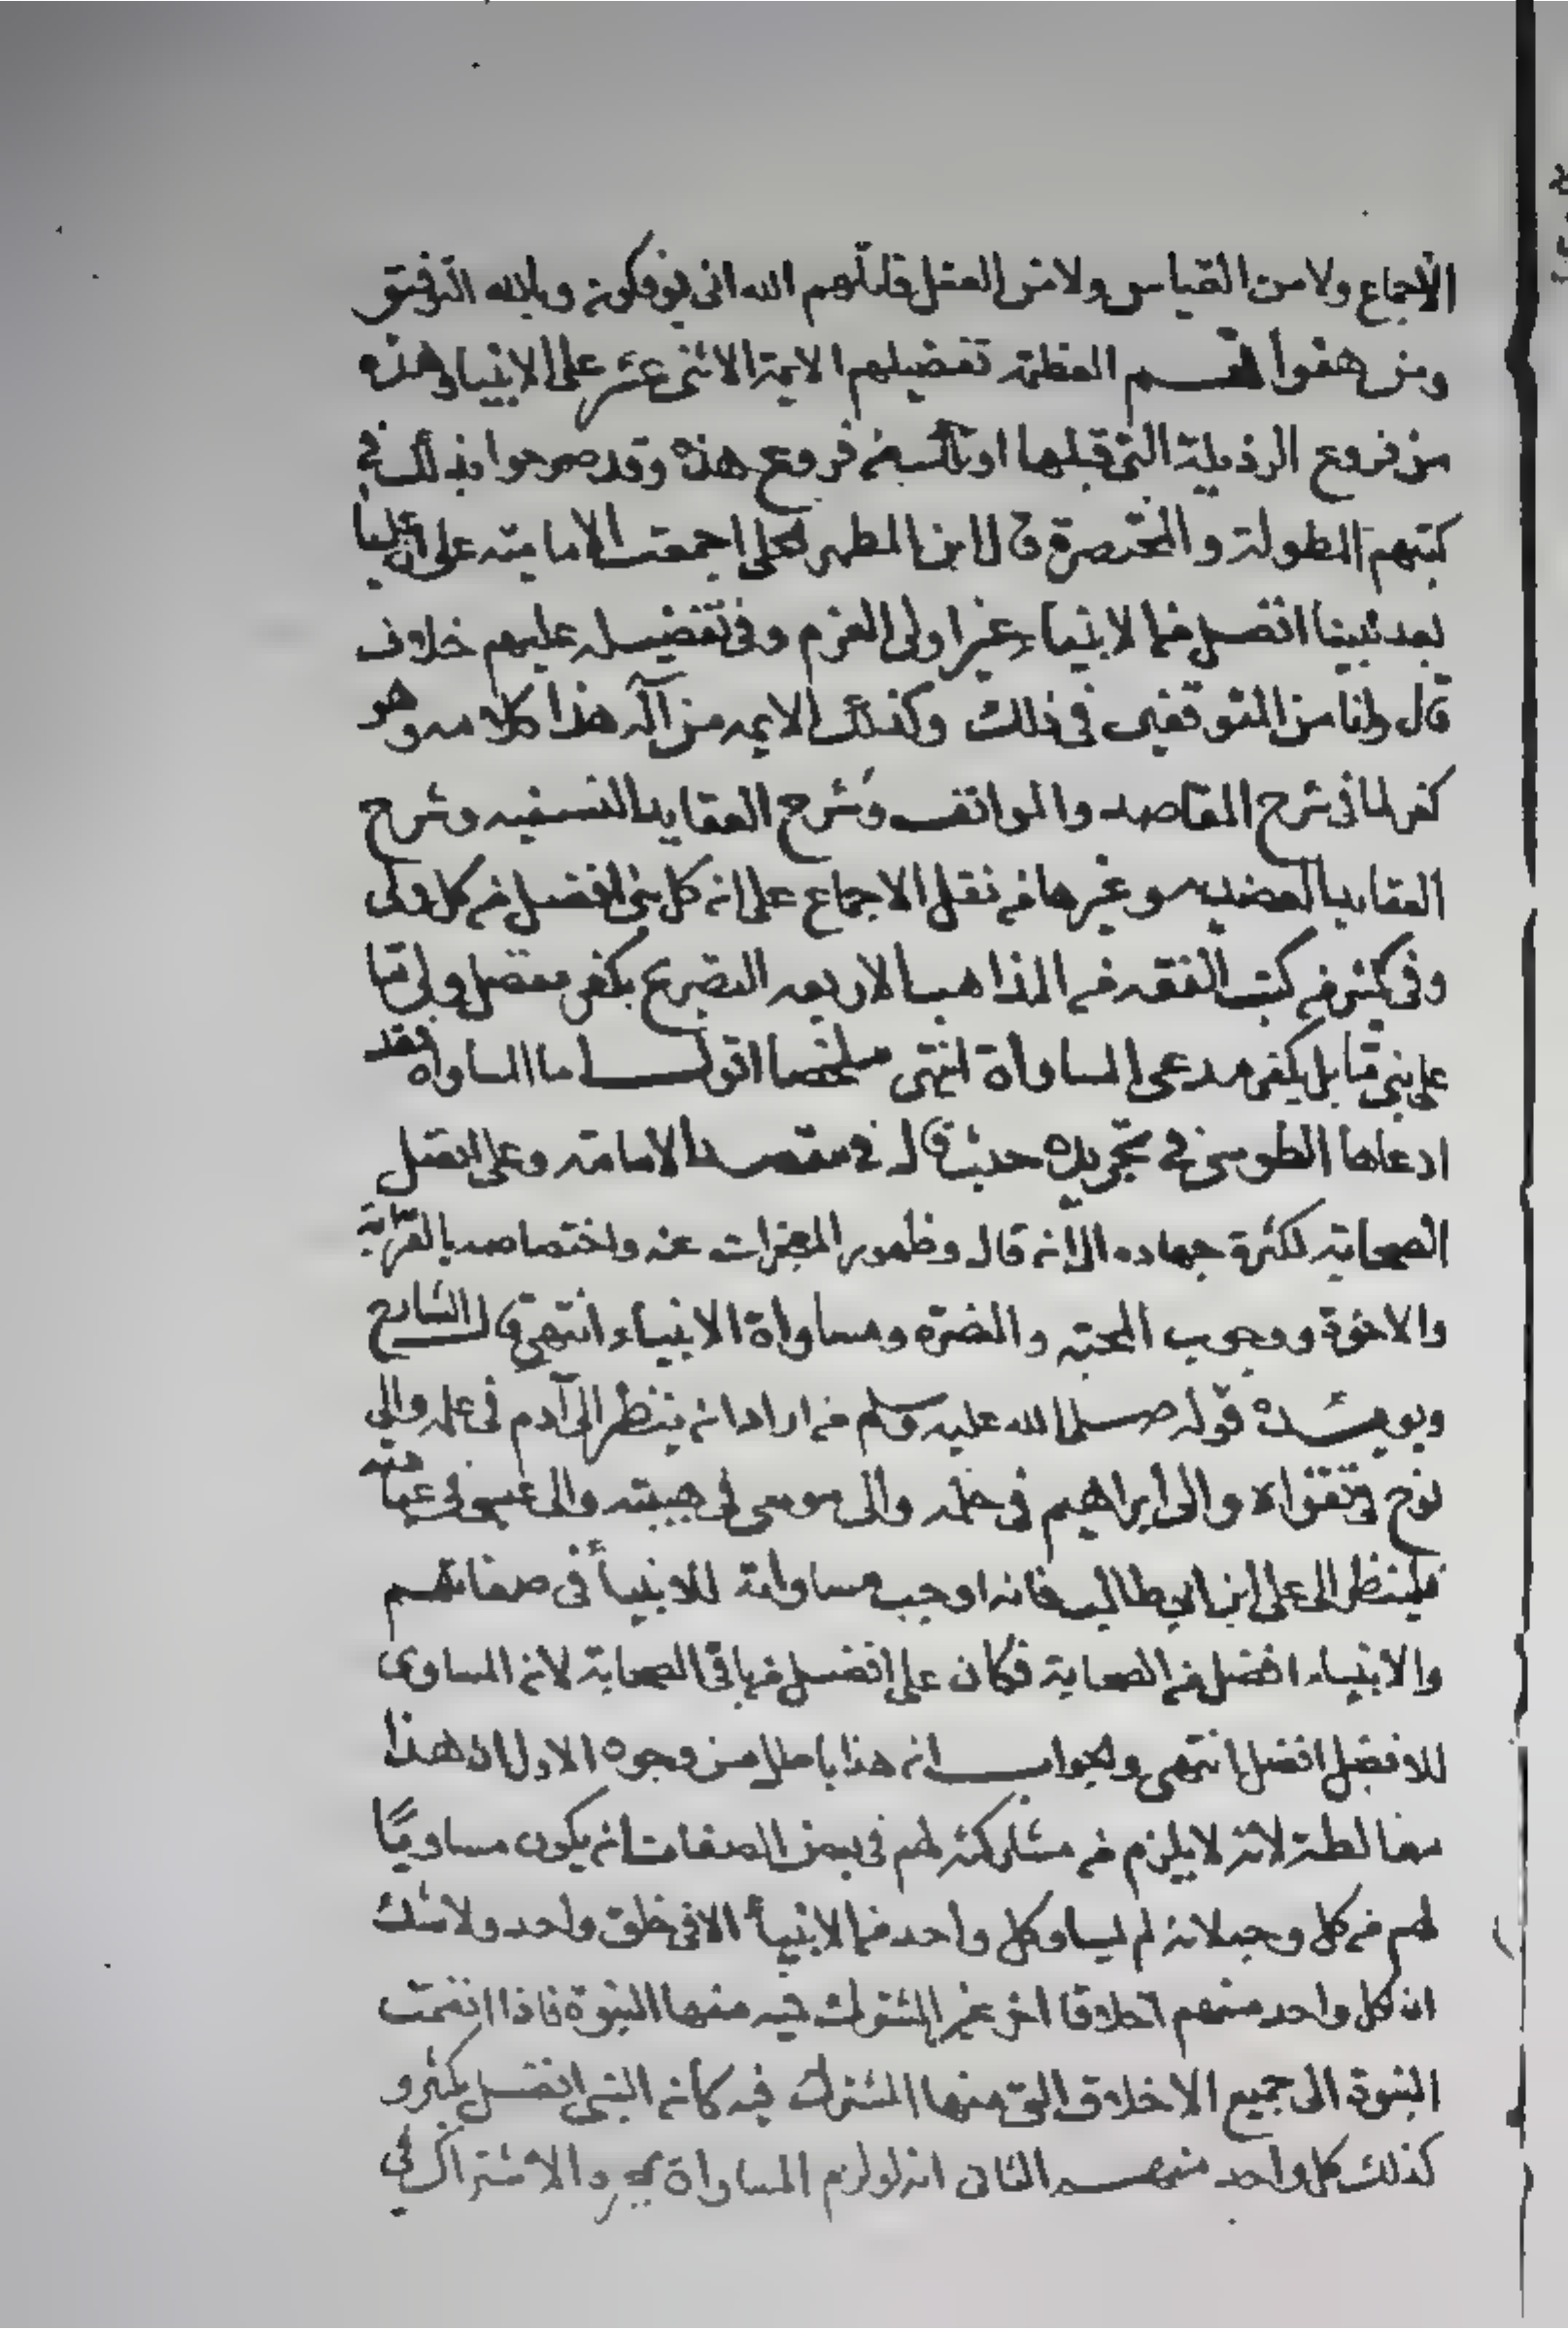 الاجماع ولا من القياس ولا من العقل قاتلهم الله انى يوفكون وبالله التوفيق
ومن هفواتهم العظيمة تفضيلهم الايمة الاثنى عشر على الانبياء وهذه
من فروع الرذيلة التى قبلها او تلك من فروع هذه وقد صرحوا بذلك في
كتبهم المطولة والمختصرة قال ابن المطهر الحلى اجمعت الامامية على ان عليا
بعد نبينا افضل من الانبياء غير اولى العزم وفى تفضيله عليهم خلاف
قال وانا من المتوقفين فى ذلك وكذلك الايمه من آله هذا كلامه وهو
كفر لما فى شرح المقاصد والمواقف وشرح العقايد النسفيه وشرح
العقايد العضديه وغيرها من نقل الاجماع على ان كل نبى افضل من كل ولى
وفى كثير من كتب الفقه من المذاهب الاربعه التصريح بكفر مفضل ولى ما
على نبى ما بل بكفر مدعى المساواة انتهى ملخصا اقول اما المساواه فقد
ادعاها الطوسى في تجريده حيث قال في مقصد الامامة وعلى افضل
الصحابة لكثرة جهاده الى ان قال وظهور المعجزات عنه واختصاصه بالقرابة
والاخوة ووجوب المحبة والنصرة ومساواة الانبياء انتهى قال الشارح
ويويده قوله صلى الله عليه وسلم من اراد ان ينظر الى آدم فى علمه والى
نوح فى تقواه والى ابراهيم فى حلمه والى موسى فى هيبته والى عيسى فى عبادته
فلينظر الى على ابن ابى طالب فانه اوجب مساواته للانبيأ فى صفاتهم
والانبياء افضل من الصحابة فكان على افضل من باقى الصحابة لان المساوى
للافضل افضل انتهى والجواب ان هذا باطل من وجوه الاول ان هذا
مغالطة لانه لا يلزم من مشاركته لهم فى بعض الصفات ان يكون مساويًا
لهم من كل وجه لانه لم يساو كل واحد من الانبيأ الا فى خلق واحد ولا شك
ان كل واحد منهم اخلاقا اخر غير المشترك فيه منها النبوة فاذا انضمت
النبوة الى جميع الاخلاق التى منها المشترك فيه كان النبى افضل بكثير و
كذلك كل واحد منهم الثانى انه لو لزم المساواة بمجرد الاشتراك فى